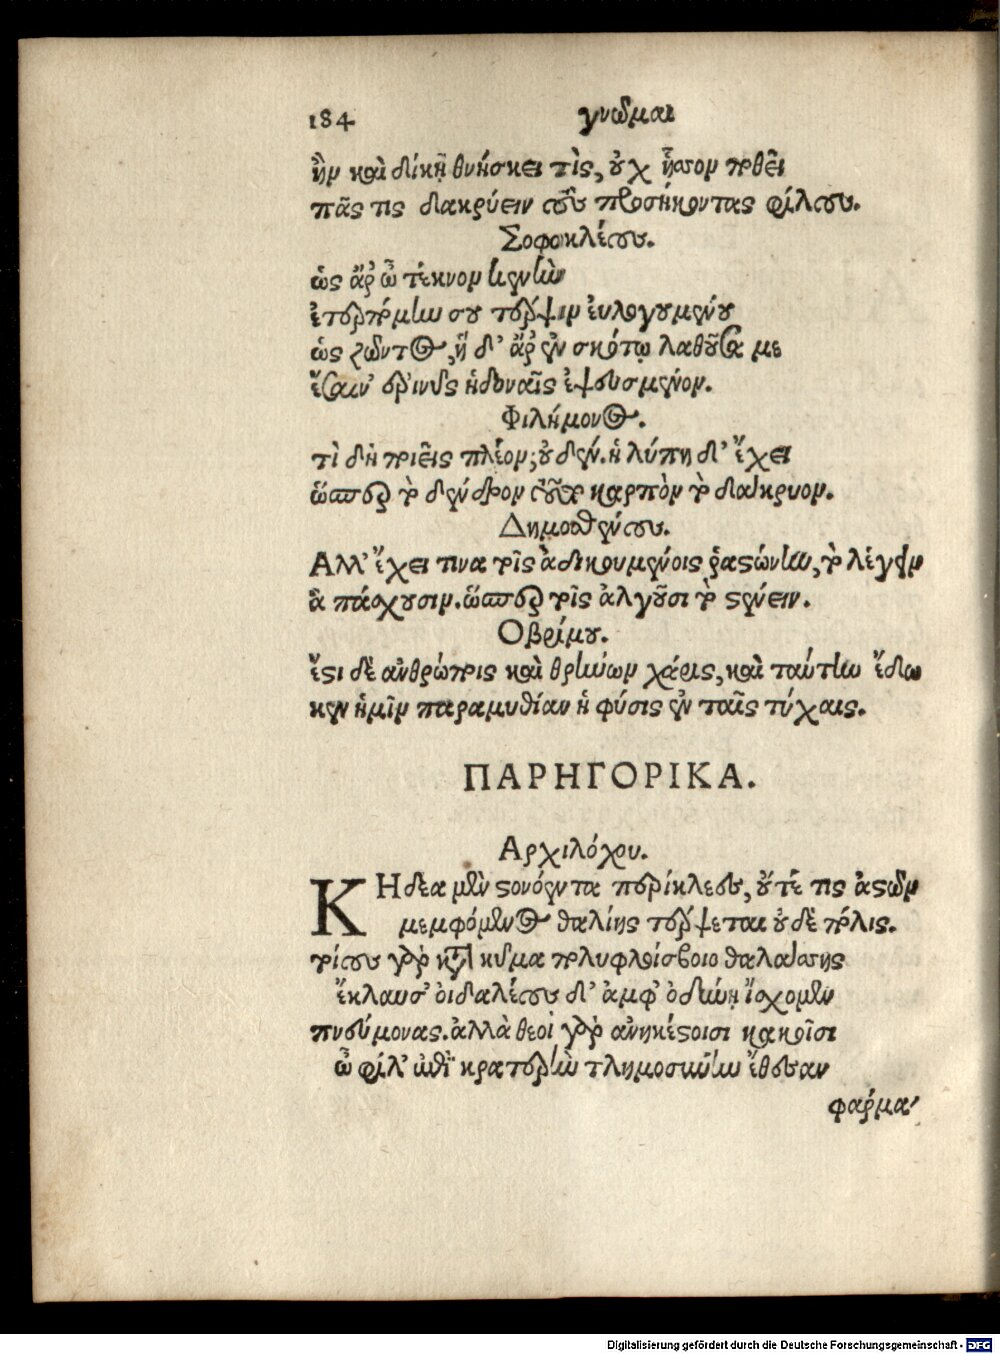 184 γνωμαι
ἢν καὶ δίκῃ θνήσκει τὶς, οὐχ ἧσσον ποθεῖ
πᾶς τις δακρύειν τοὺς προσήκοντας φίλους.
Σοφοκλέους.
ὡς ἄρ᾽ ὦ τέκνον
ἐτερπόμην σου τέρψιν εὐλογουμένου
ὡς ζῶντος, ἡ δ᾽ ἄρ᾽ ἐν σκότῳ λαθοῦσα με
ἔσαιν᾽ ἐρινὺς ἡδοναῖς ἐψευσμένον.
Φιλήμονος.
τὶ δὴ ποιεῖς πλέον; οὐδέν. ἡ λύπη δ᾽ ἔχει
ὥσπερ τὸ δένδρον τοῦτο καρπὸν τὸ δάκρυον.
Δημοσθένους.
Αλλ᾽ ἔχει τινα τοῖς ἀδικουμένοις ῥαστώνην, τὸ λέγειν
ἃ πάσχουσιν. ὥσπερ τοῖς ἀλγοῦσι τὸ στένειν.
Οβρίμου.
ἔστι δὲ ἀνθρώποις καὶ θρήνων χάρις, καὶ ταύτην ἔδω
κεν ἡμῖν παραμυθίαν ἡ φύσις ἐν ταῖς τύχαις.
ΠΑΡΗΓΟΡΙΚΑ.
Αρχιλόχου.
ΚΗδεα μὲν στονόεντα περίκλεες, οὔτέ τις ἀστῶν
μεμφόμενος θαλίης τέρψεται οὐδὲ πόλις.
τοίους γὰρ κατὰ κῦμα πολυφλοίσβοιο θαλάσσης
ἔκλαυσ᾽ οἰδαλέους δ᾽ ἀμφ᾽ ὀδύνῃ ἴσχομεν
πνεύμονας. ἀλλὰ θεοὶ γὰρ ἀνηκέστοισι κακοῖσι
ὦ φίλ᾽ ἐπὶ κρατερὴν τλημοσύνην ἔθεσαν
φάρμα
Digitalisierung gefördert durch die Deutsche Forschungsgemeinschaft - DFG